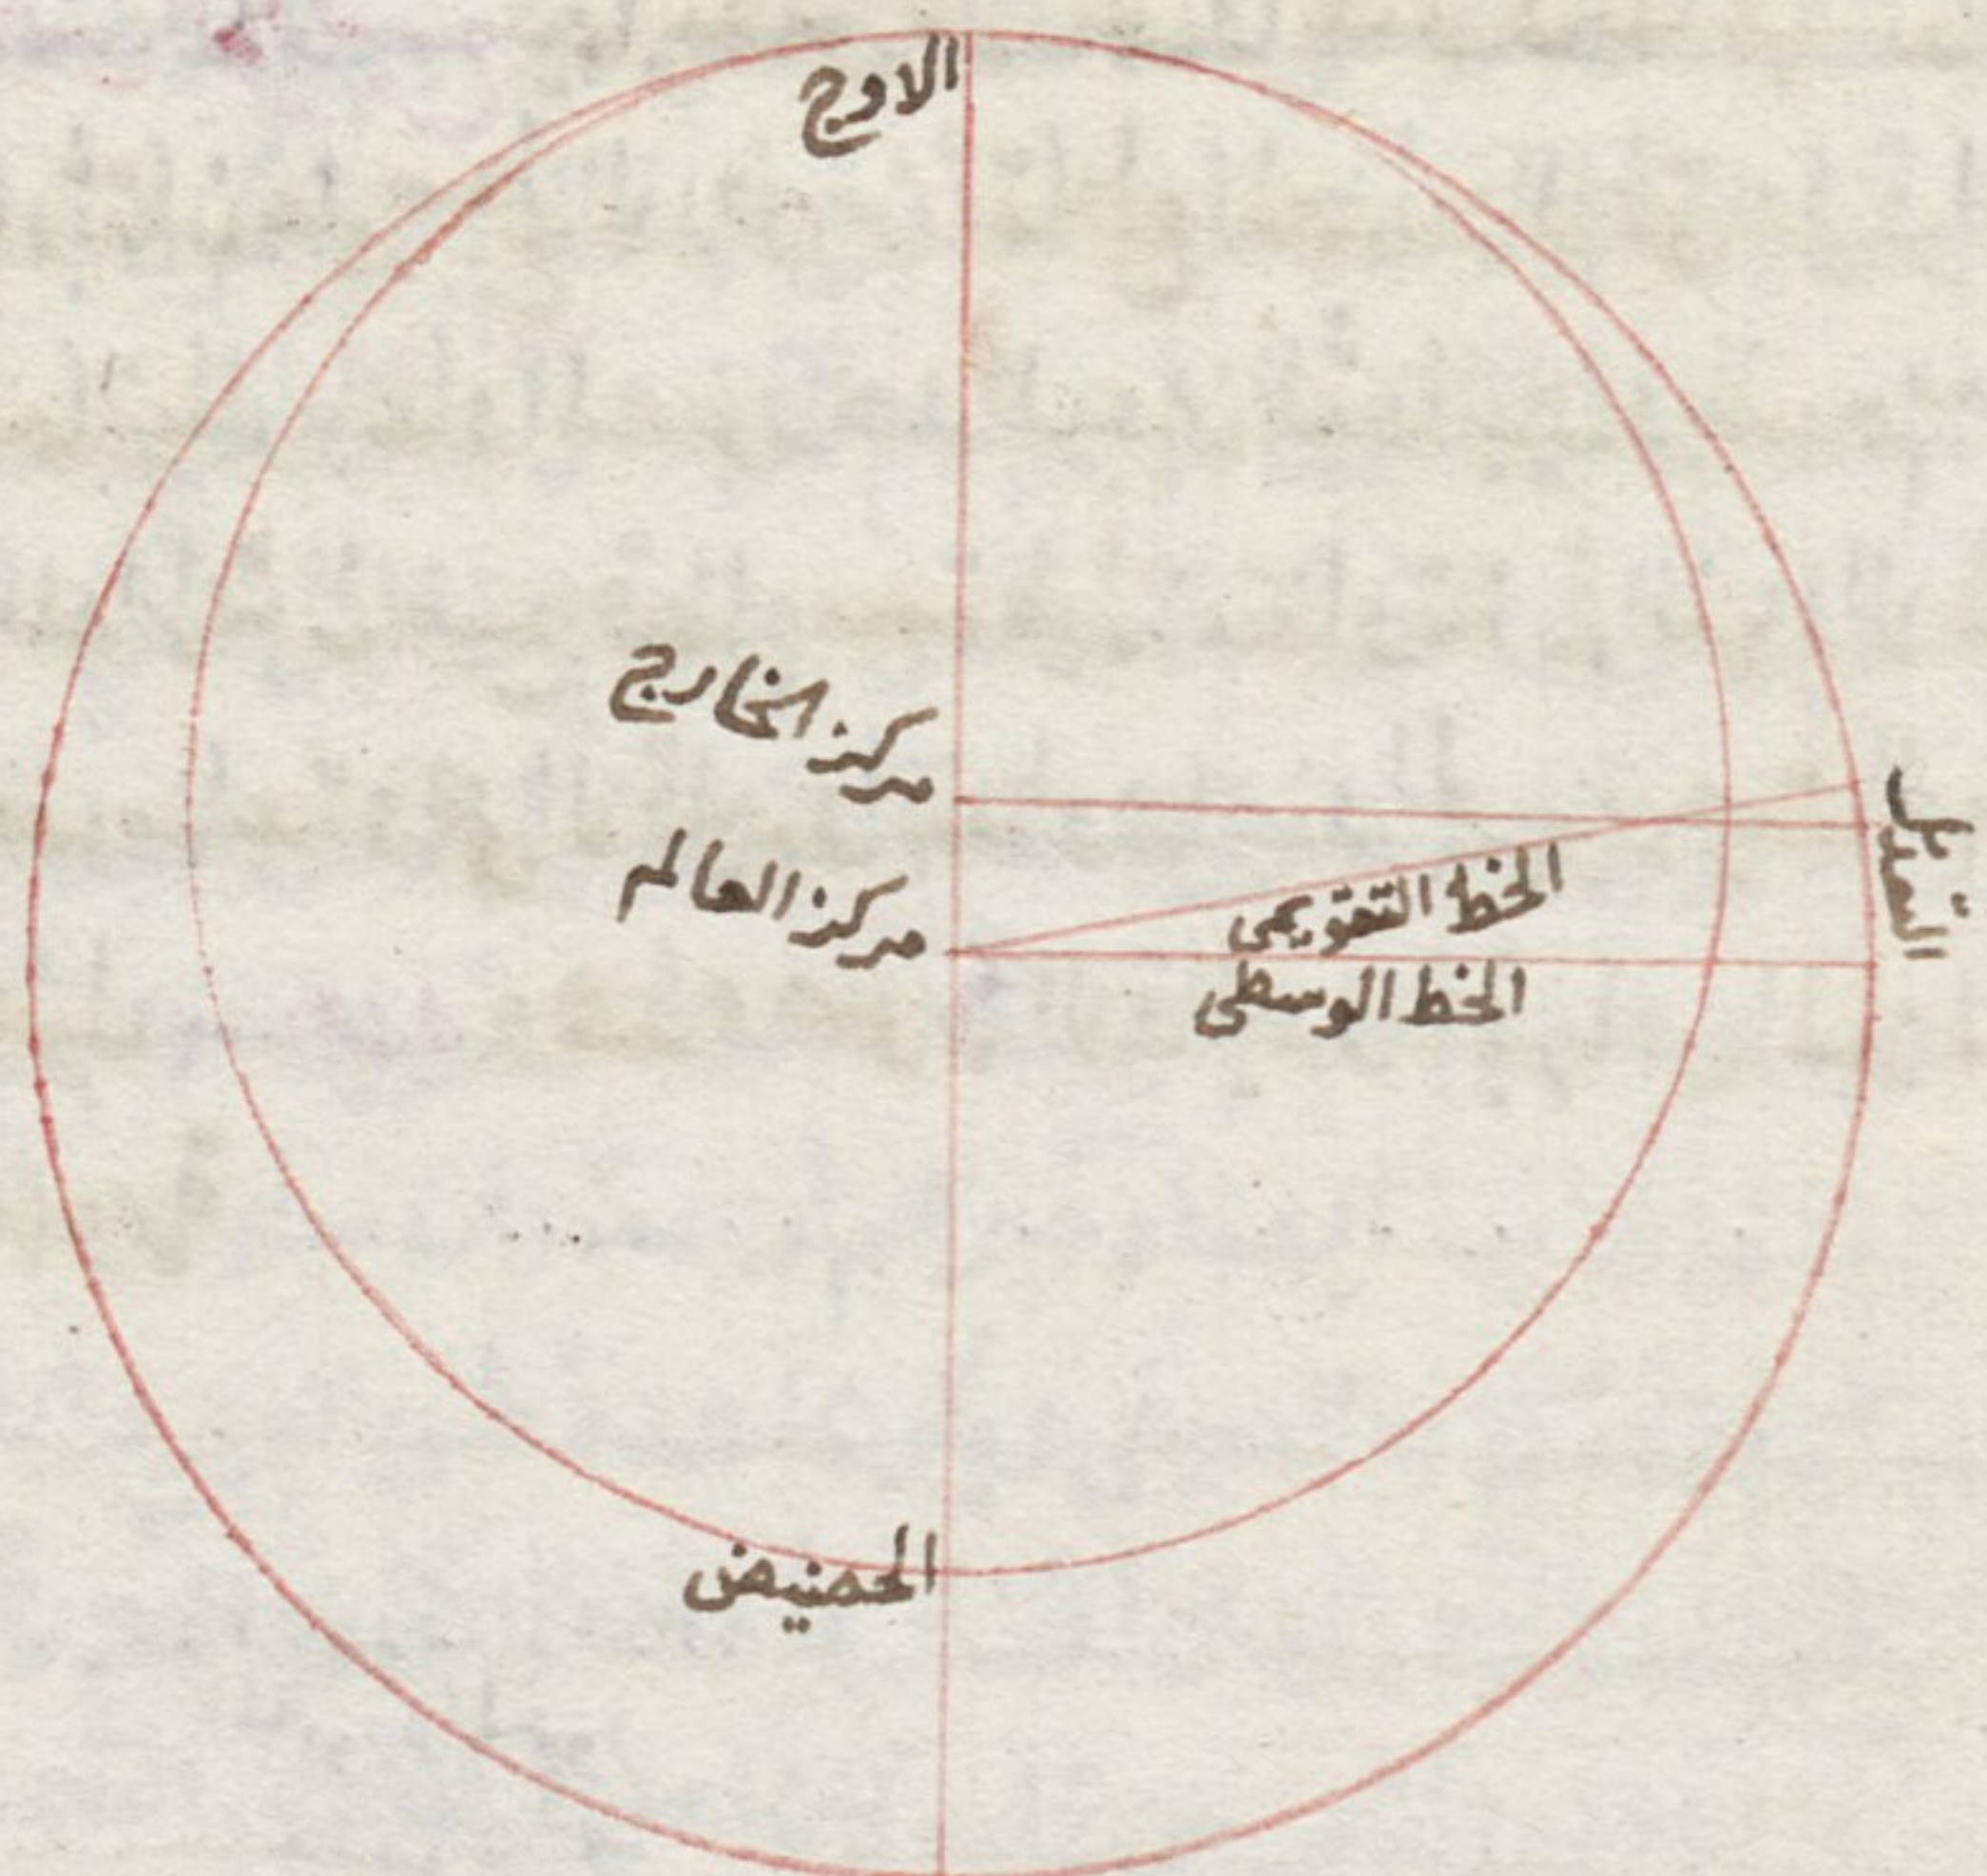 الاوج
مركز الخارج
مركز العالم
الخط التقويمى
الخط الوسطى
التعديل
الحضيض